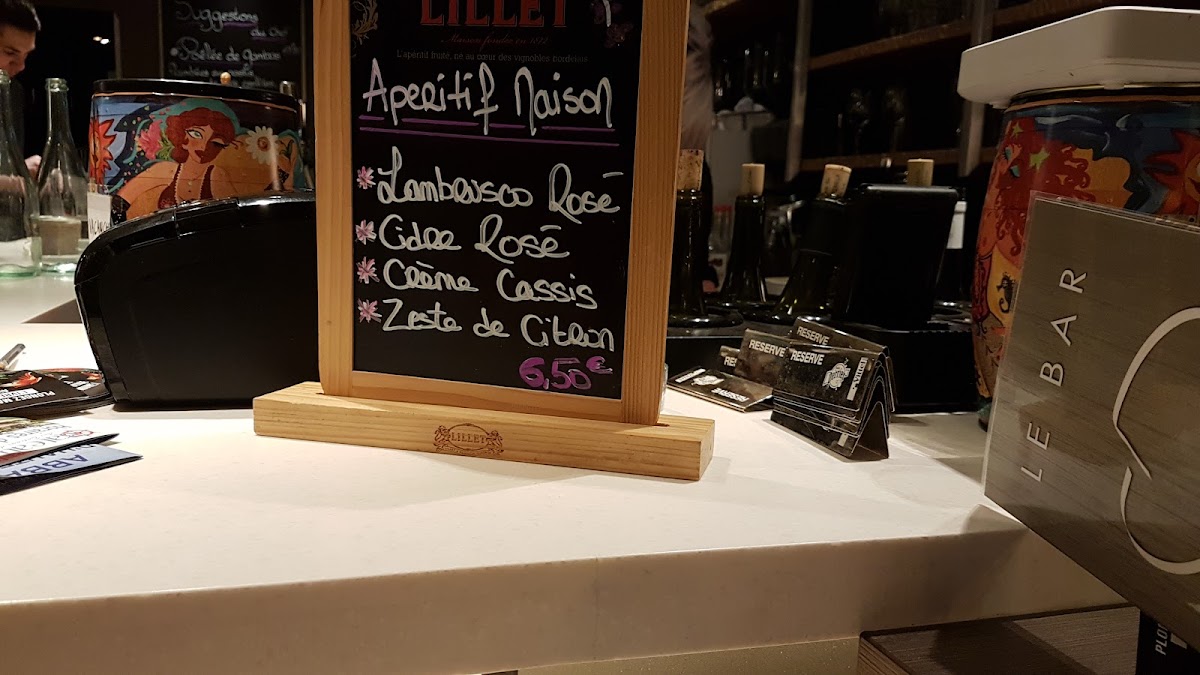 Suggestions
du Chef
LILLET
Maison fondée en 1872
L'apéritif fruité, né au cœur des vignobles bordelais
Aperitif Maison
Lambrusco Rosé
Cidre Rosé
Crème Cassis
Zeste de Citron
6,50€
LILLET
RESERVE
RESERVE
RESERVE
LE BAR
ABBA